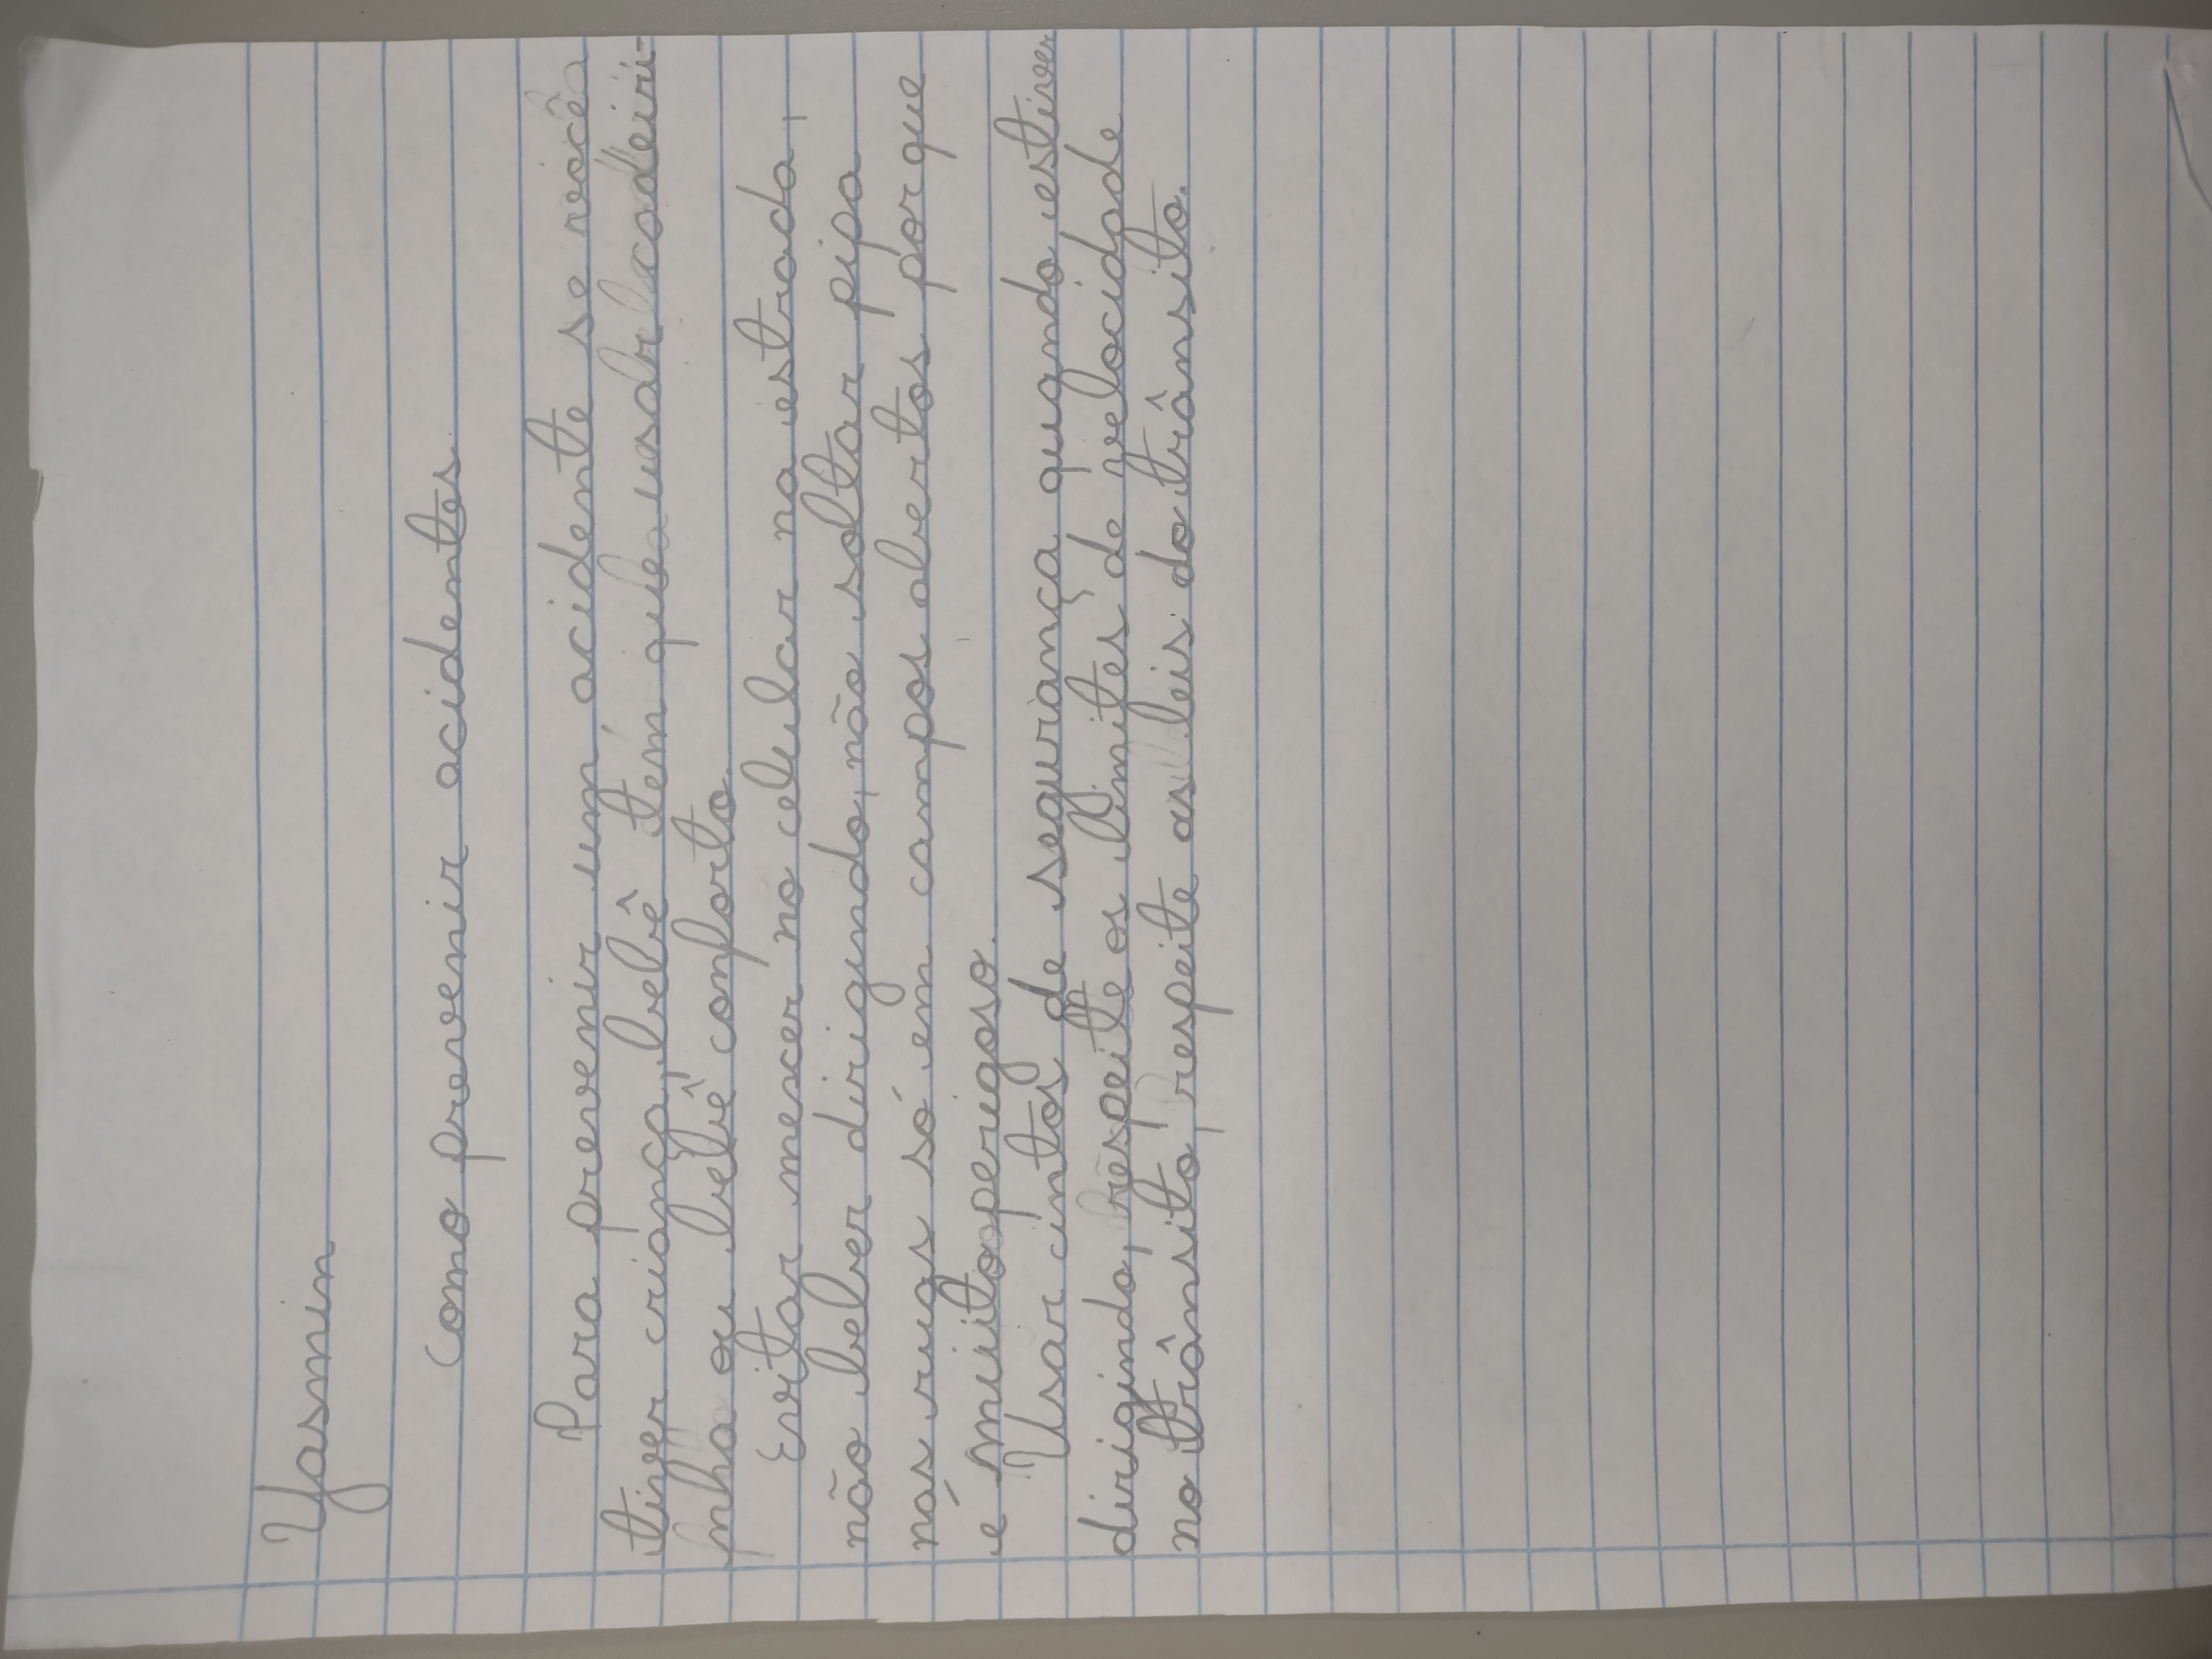 Yasmin
Como prevenir acidentes
Para prevenir um acidente se você
tiver criança, bebê tem que usar cadeiri-
nha ou bebê conforto.
Evitar mescer no celular na estrada,
não beber dirigundo, não soltar pipa
nas ruas só em campos abertos por que
é muito perigoso.
Usar cintos de segurança quando estiver
dirigindo, respeite os limites de velocidade
no trânsito, respeite as leis do trânsito.